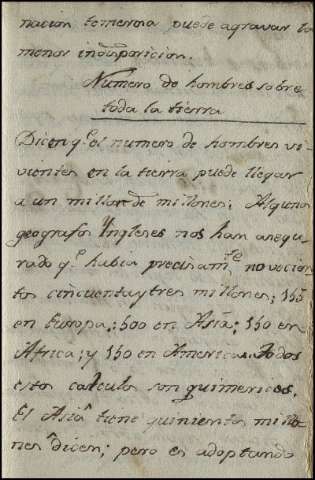 nacion temerosa puede agravar la
menor indisposicion.
Numero de hombres sobre
toda la tierra
Dicen q.e el numero de hombres vi-
vientes en la tierra puede llegar
a un millar de millones; Algunos
geografos Yngleses nos han asegu-
rado q.e habia precisam.te novecien-
tos cincuenta y tres millones; 153
en Europa; 500 en Asia; 150 en
Africa; y 150 en America. Todos
estos calculos son quimericos.
El Asia tiene quinientos millo-
nes dicen; pero es adoptando